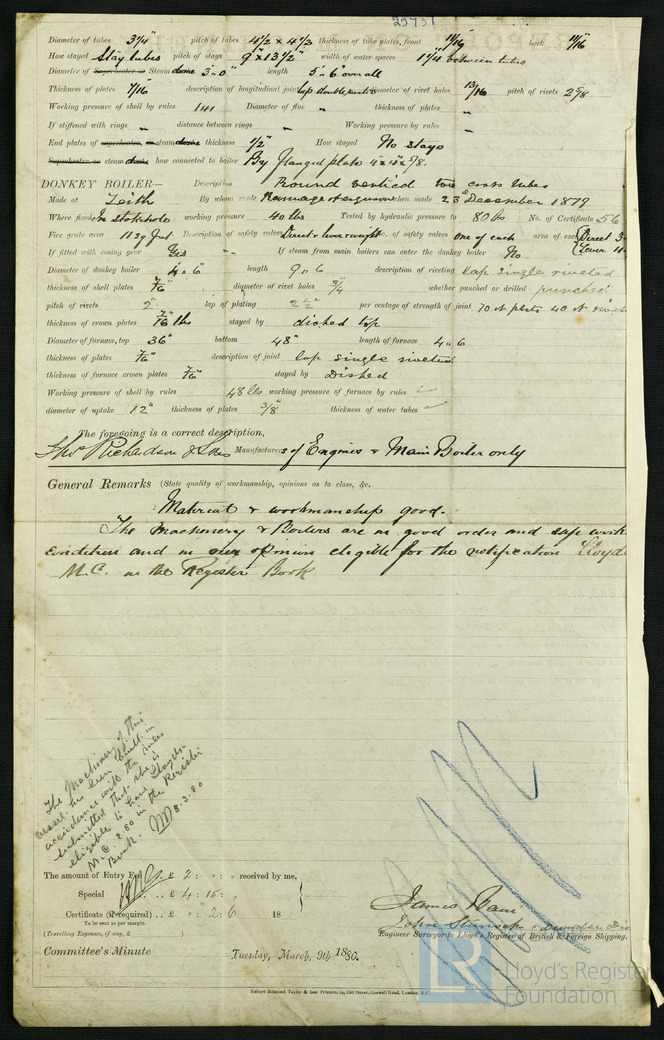 25737
Diameter of tubes 3 1/4" pitch of tubes 4 1/2 x 4 1/2 thickness of tube plates, front 11/16 back 11/16
How stayed Stay tubes pitch of stays 9" x 13 1/2" width of water spaces 1 1/4 between tubes
Diameter of Superheater or Steam dome 3'.0" length 5'.6" over all
Thickness of plates 7/16 description of longitudinal joint lap double riveted diameter of rivet holes 13/16 pitch of rivets 2 5/8
Working pressure of shell by rules 141 Diameter of flue " thickness of plates "
If stiffened with rings " distance between rings " Working pressure by rules "
End plates of superheater, or steam dome thickness 1/2" How stayed No stays
Superheater or steam dome; how connected to boiler By flanged plate
DONKEY BOILER— Description Round vertical two cross tubes
Made at Leith By whom made Ramage & Ferguson when made 23d December 1879
Where fixed In stokehole working pressure 40 lbs Tested by hydraulic pressure to 80 lbs No. of Certificate 56
Fire grate area Description of safety valves Direct & lever weight No. of safety valves one of each area of each Direct 3
Lever 4
If fitted with easing gear Yes If steam from main boilers can enter the donkey boiler No
Diameter of donkey boiler 4.6" length 9.6 description of riveting lap single riveted
thickness of shell plates 7/16 diameter of rivet holes 3/4 whether punched or drilled punched
pitch of rivets 2" lap of plating 2 1/2" per centage of strength of joint 70 of plate 40 of rivets
thickness of crown plates 7/16 stayed by dished top
Diameter of furnace, top 36" bottom 48" length of furnace 4.6
thickness of plates 7/16 description of joint lap single riveted
thickness of furnace crown plates 7/16 stayed by Dished
Working pressure of shell by rules 48 lbs working pressure of furnace by rules
diameter of uptake 12" thickness of plates 3/8 thickness of water tubes
The foregoing is a correct description,
Thos Richardson & Sons Manufacturers of Engines & Main Boiler only
General Remarks (State quality of workmanship, opinions as to class, &c.
Material & workmanship good.
The Machinery & Boilers are in good order and safe work
condition and in our opinion eligible for the notification Lloyds
M.C. in the Register Book
The Machinery of this
vessel has been built in
accordance with the rules
submitted that she is
eligible to have Lloyds
M.C. 2.80 in the Register
Book. 8.3.80
The amount of Entry Fee .. £ 2 : " : " received by me,
Special .. £ 4 : 15 : "
Certificate (if required) .. £ " : 2 : 6 18
To be sent as per margin.
(Travelling Expenses, if any, £ )
James
John
Engineer Surveyor to Lloyd's Register of British & Foreign Shipping.
Committee's Minute Tuesday, March, 9th 1880.
Robert Edmund Taylor & Son Printers, 19, Old Street, Goswell Road, London, E.C.
LR Lloyd's Register
Foundation